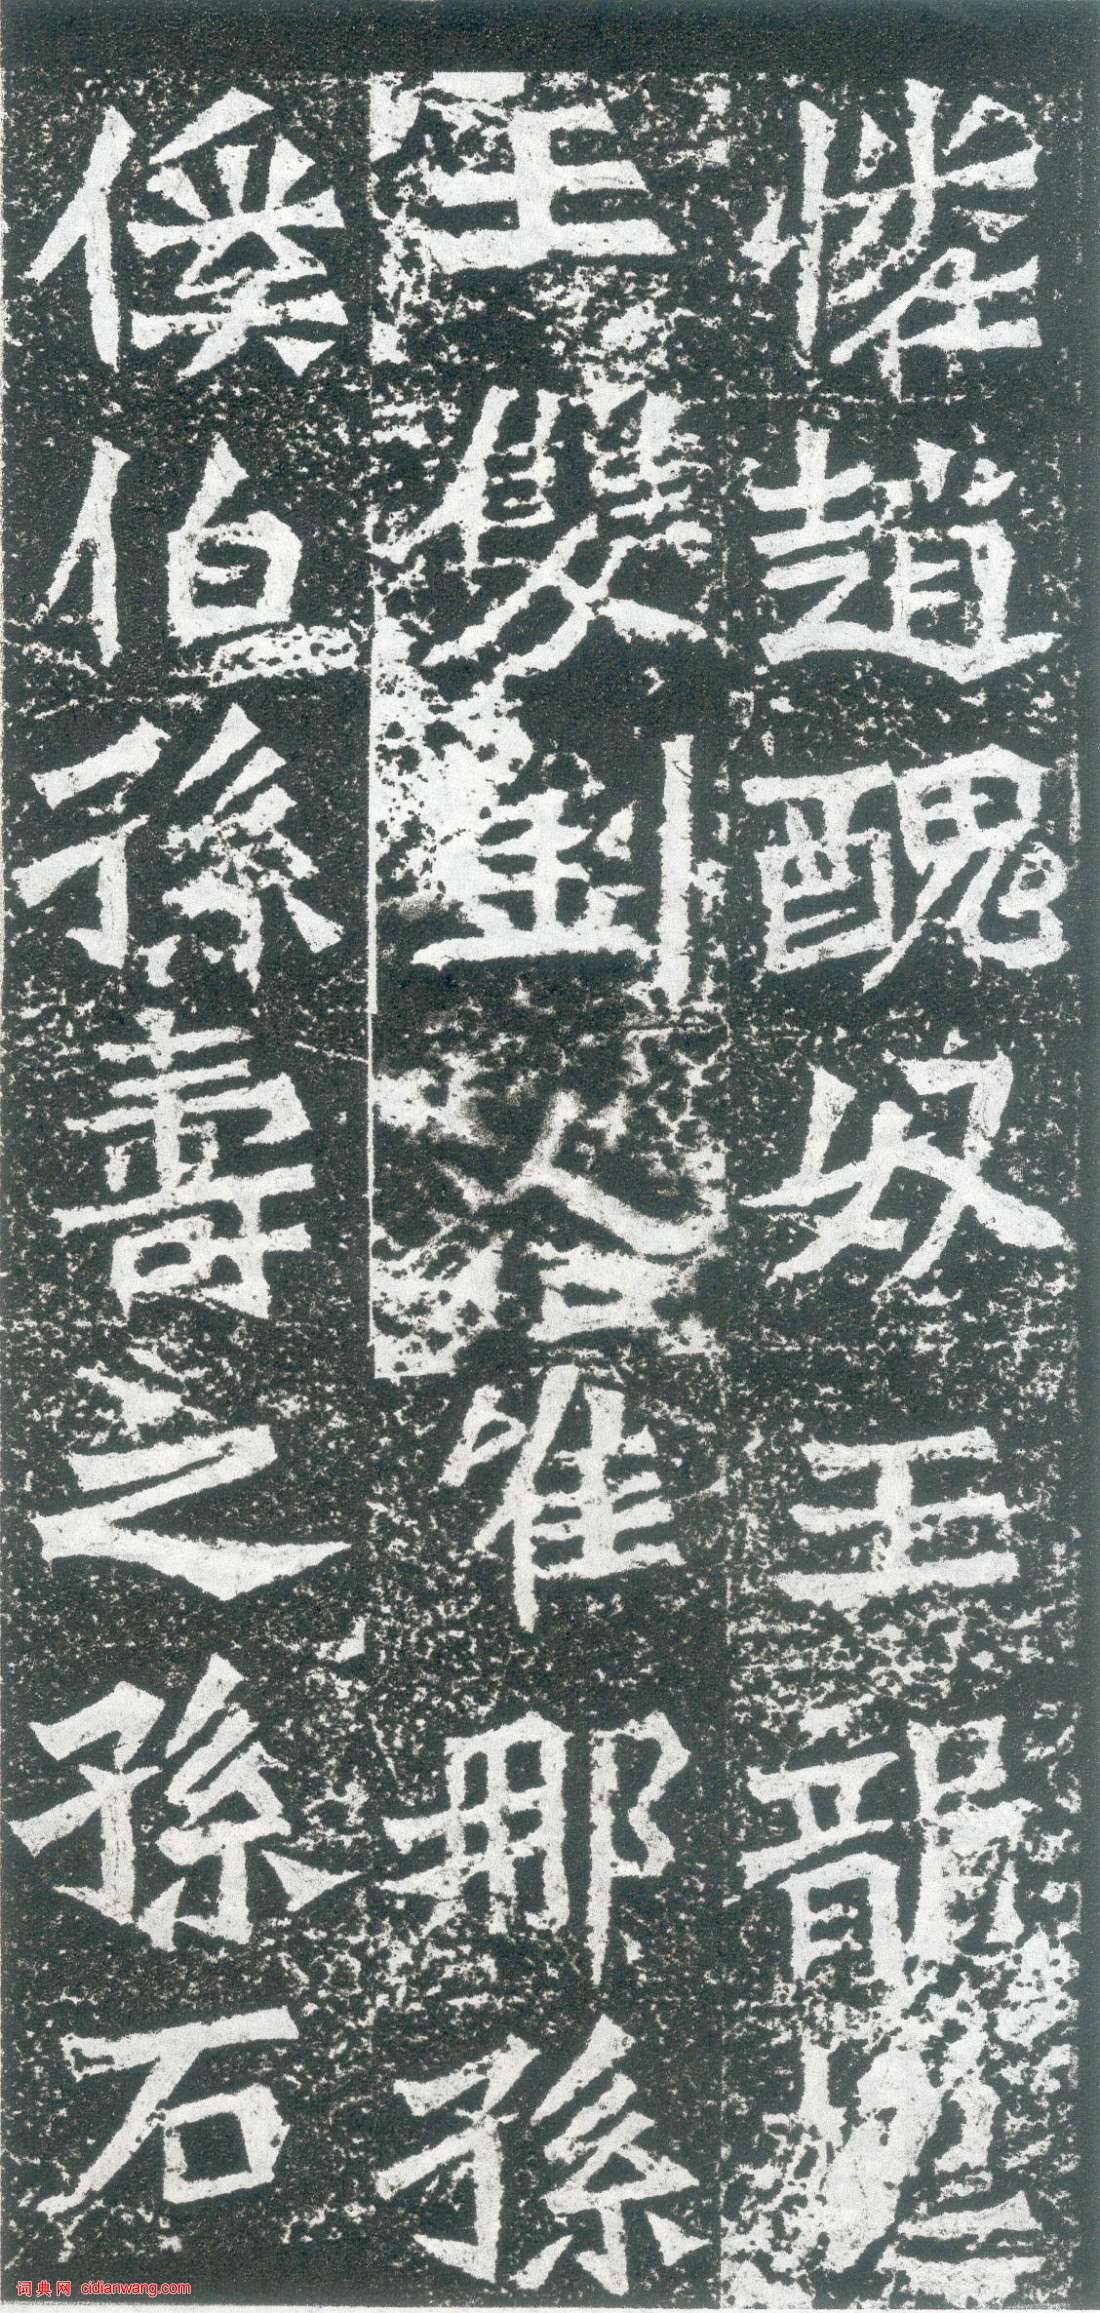 趙醜奴王龍
王雙劉唯那孫
俟伯孫壽之孫石
词典网 cidianwang.com